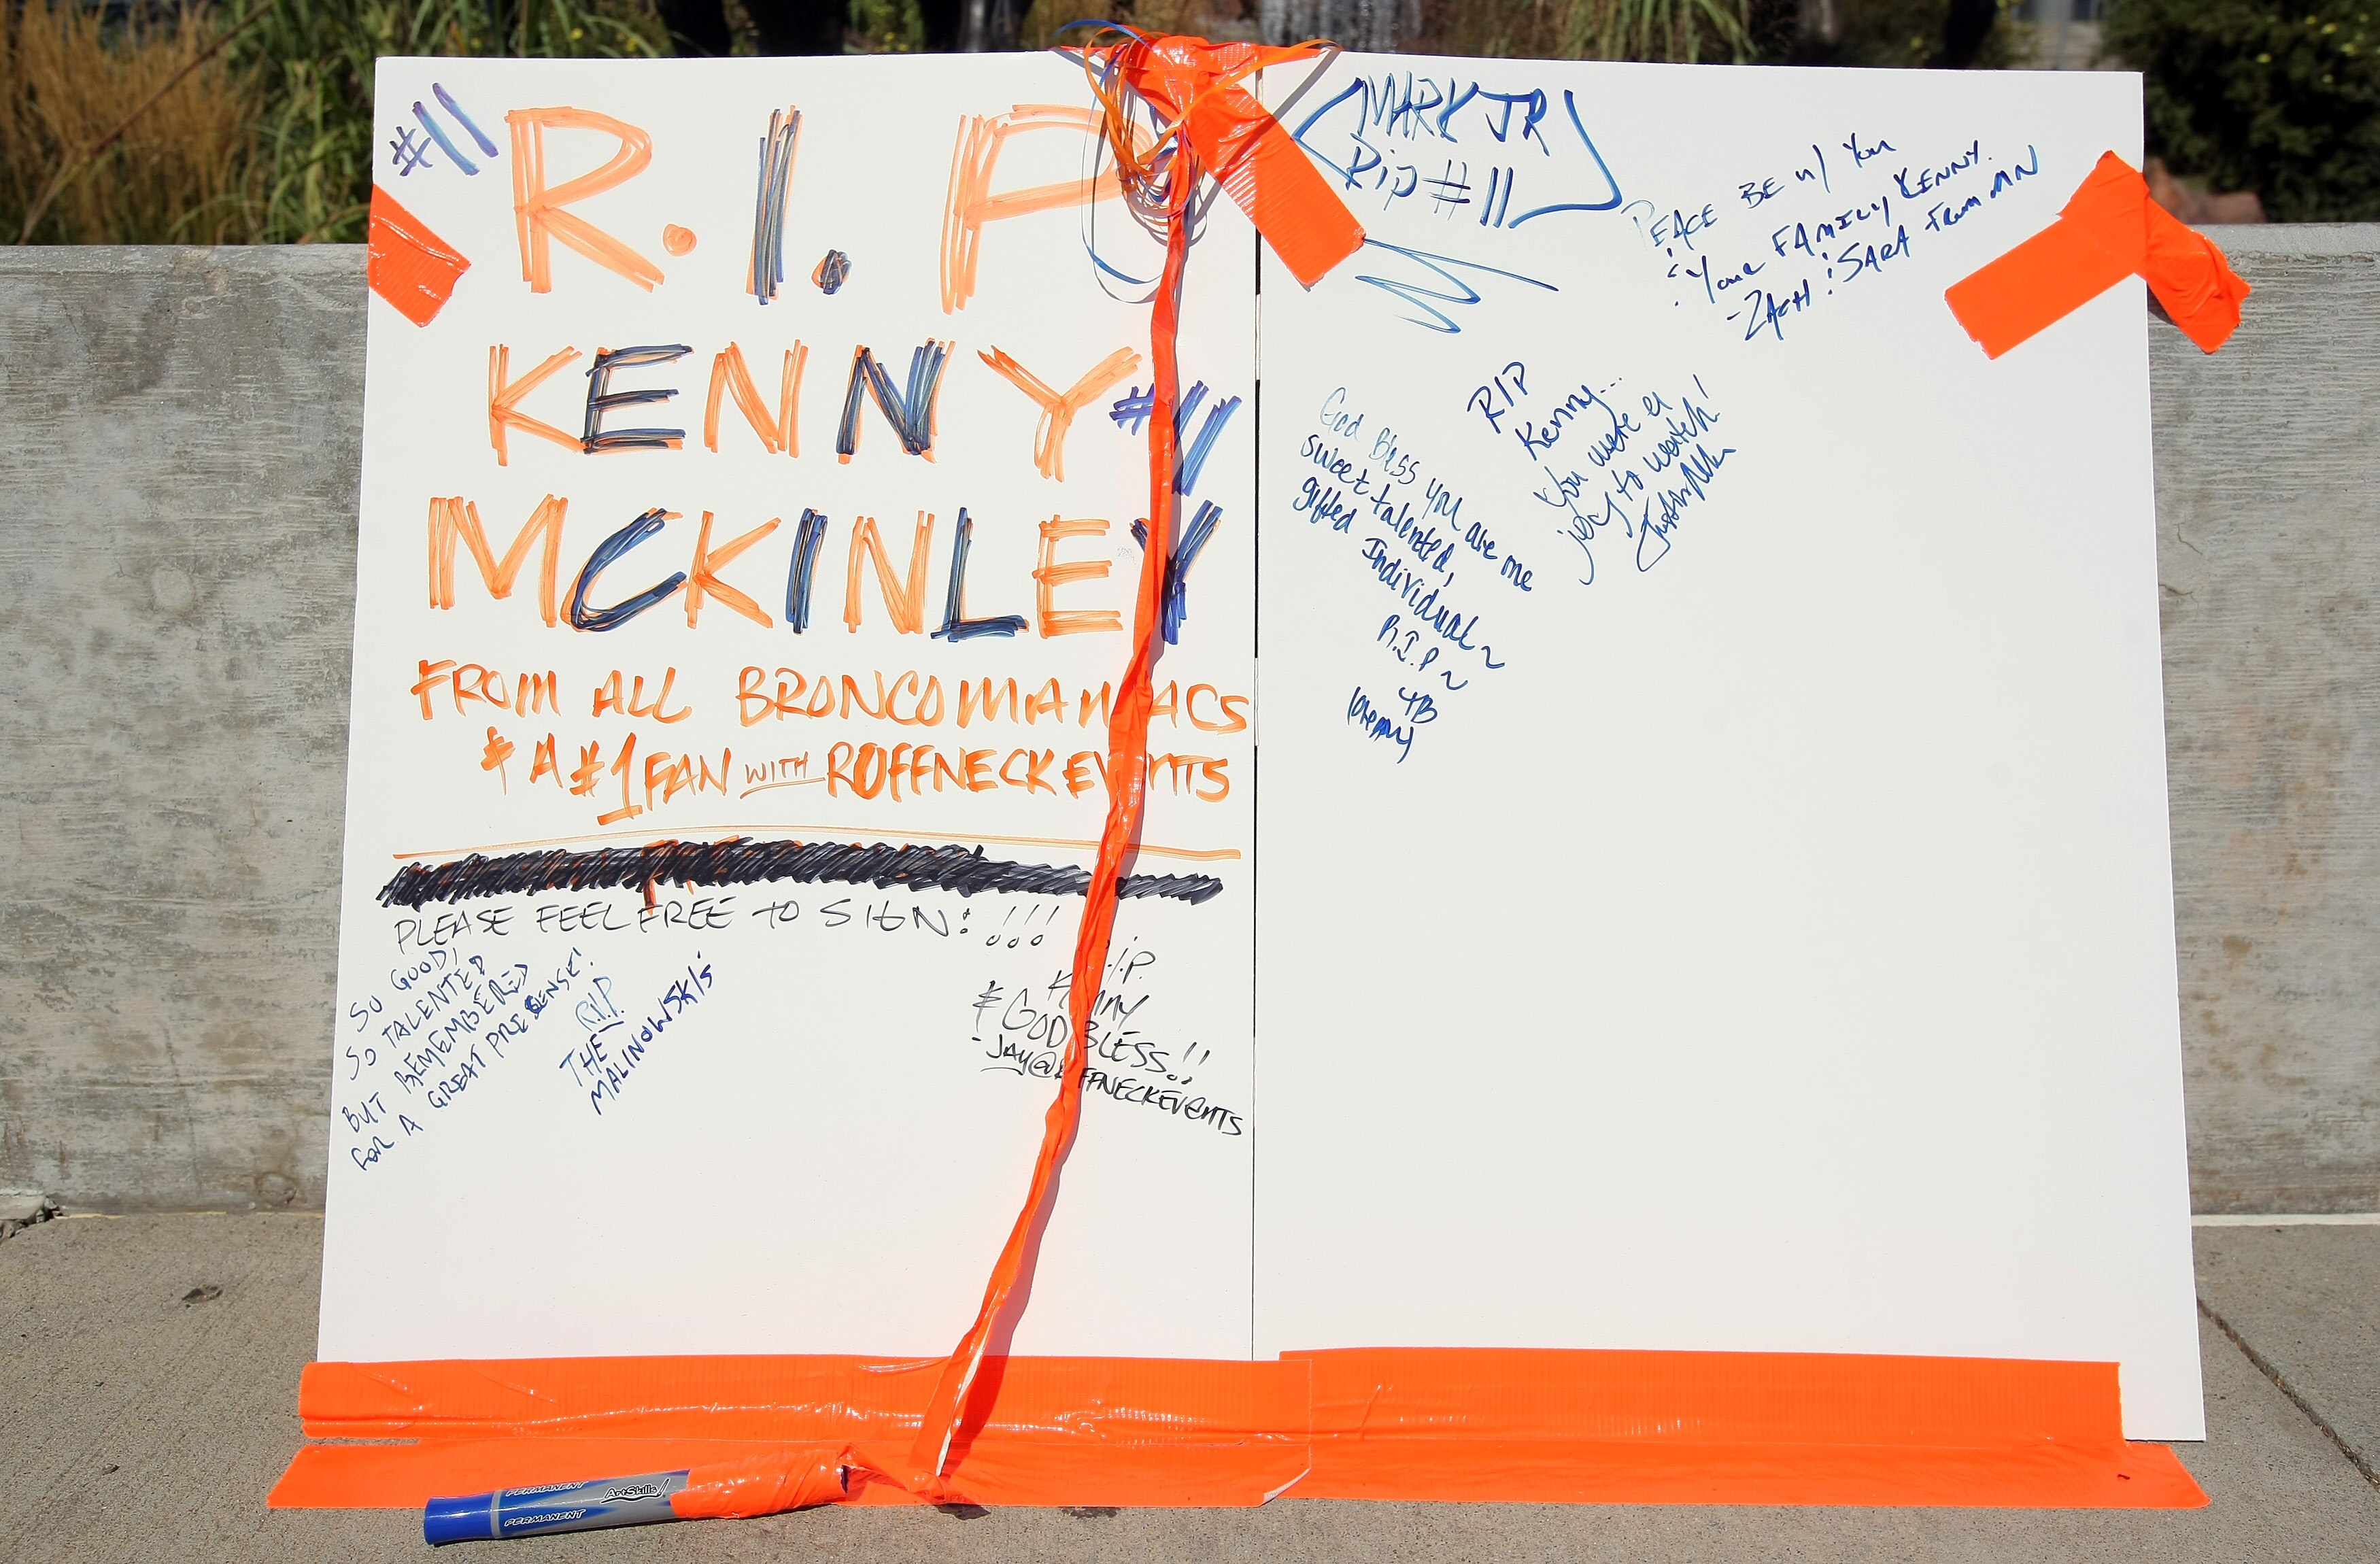 #11
R.I.P
KENNY #11
MCKINLEY
FROM ALL BRONCOMANIACS
& A #1 FAN WITH ROFFNECKEVENTS
PLEASE FEEL FREE TO SIGN: !!!
SO GOOD,
SO TALENTED
BUT REMEMBERED
FOR A GREAT PRESENSE!
R.I.P.
THE
MALINOWSKI'S
R.I.P.
KENNY
& GOD BLESS!!
-JAY@ROFFNECKEVENTS
MARK JR
Rip #11
PEACE BE w/ You
& Your FAMILY KENNY.
-ZACH & SARA From MN
RIP
Kenny...
You were a
joy to watch!
God Bless you are me
sweet talented,
gifted Individual~
R.I.P~
4B
PERMANENT
ArtSkills!
PERMANENT